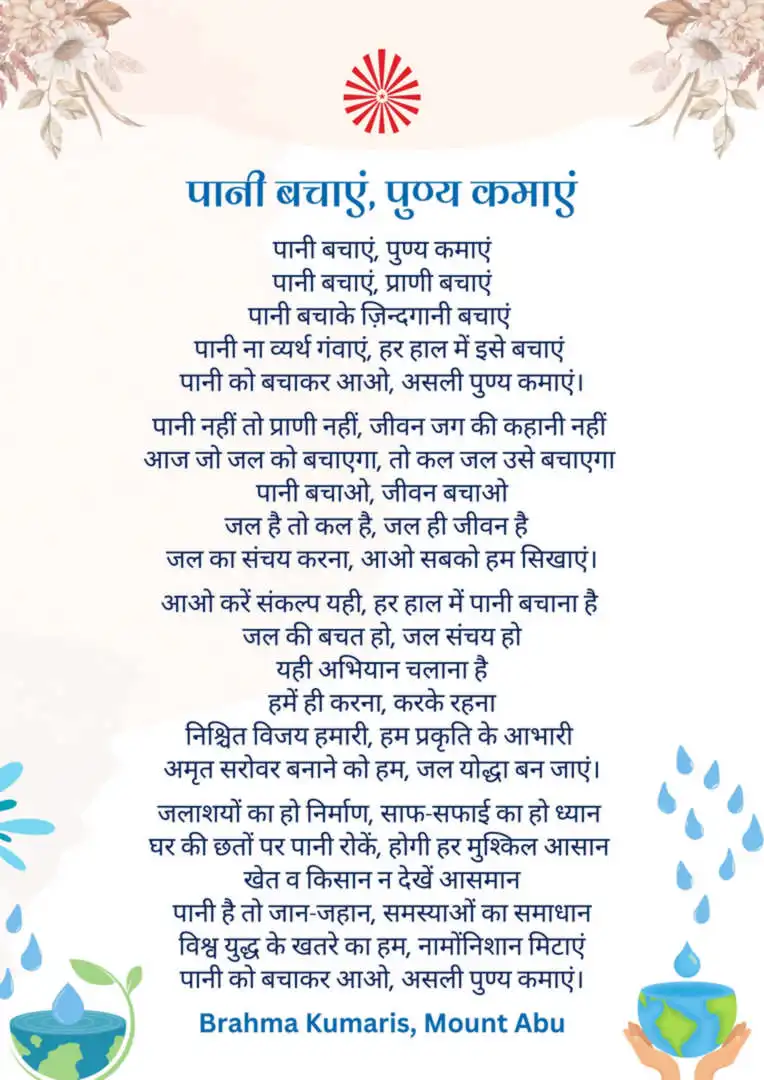 पानी बचाएं, पुण्य कमाएं
पानी बचाएं, पुण्य कमाएं
पानी बचाएं, प्राणी बचाएं
पानी बचाके ज़िन्दगानी बचाएं
पानी ना व्यर्थ गंवाएं, हर हाल में इसे बचाएं
पानी को बचाकर आओ, असली पुण्य कमाएं।
पानी नहीं तो प्राणी नहीं, जीवन जग की कहानी नहीं
आज जो जल को बचाएगा, तो कल जल उसे बचाएगा
पानी बचाओ, जीवन बचाओ
जल है तो कल है, जल ही जीवन है
जल का संचय करना, आओ सबको हम सिखाएं।
आओ करें संकल्प यही, हर हाल में पानी बचाना है
जल की बचत हो, जल संचय हो
यही अभियान चलाना है
हमें ही करना, करके रहना
निश्चित विजय हमारी, हम प्रकृति के आभारी
अमृत सरोवर बनाने को हम, जल योद्धा बन जाएं।
जलाशयों का हो निर्माण, साफ-सफाई का हो ध्यान
घर की छतों पर पानी रोकें, होगी हर मुश्किल आसान
खेत व किसान न देखें आसमान
पानी है तो जान-जहान, समस्याओं का समाधान
विश्व युद्ध के खतरे का हम, नामोंनिशान मिटाएं
पानी को बचाकर आओ, असली पुण्य कमाएं।
Brahma Kumaris, Mount Abu